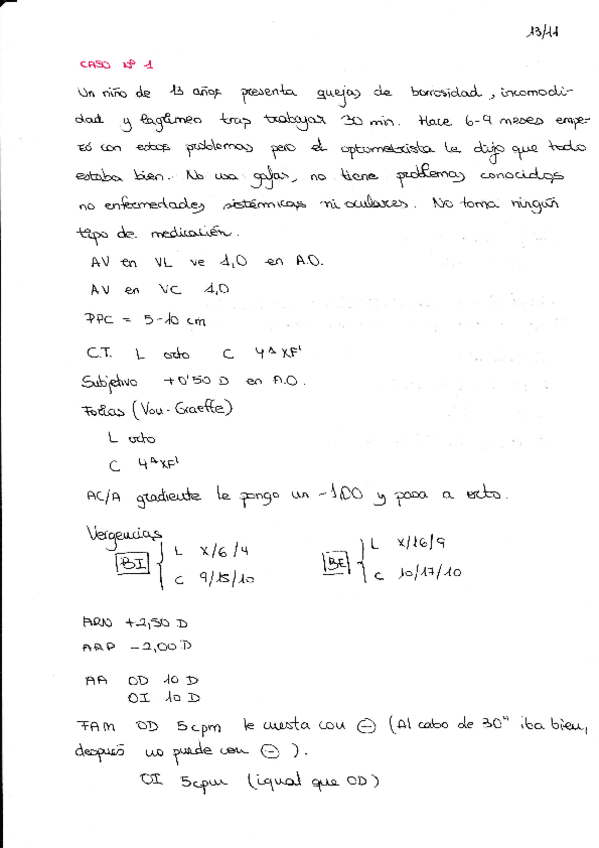 13/11
CASO Nº 1
Un niño de 13 años presenta quejas de borrosidad, incomodi-
dad y lagrimeo tras trabajar 30 min. Hace 6-9 meses empe-
zó con estos problemas pero el optometrista le dijo que todo
estaba bien. No usa gafas, no tiene problemas conocidos
no enfermedades sistémicas ni oculares. No toma ningún
tipo de medicación.
AV en VL ve 1,0 en A.O.
AV en VC 1,0
PPC = 5-10 cm
C.T. L orto C 4△ XF'
Subjetivo +0'50 D en A.O.
Forias (Vou-Graeffe)
L orto
C 4△XF'
AC/A gradiente le pongo un -1,00 y pasa a orto.
Vergencias
BI { L X/6/4
C 9/15/10
BE { L X/16/9
C 10/17/10
ARN +2,50 D
ARP -2,00 D
AA OD 10 D
OI 10 D
FAM OD 5cpm le cuesta con ⊖ (Al cabo de 30" iba bien,
después no puede con ⊖).
OI 5cpm (igual que OD)